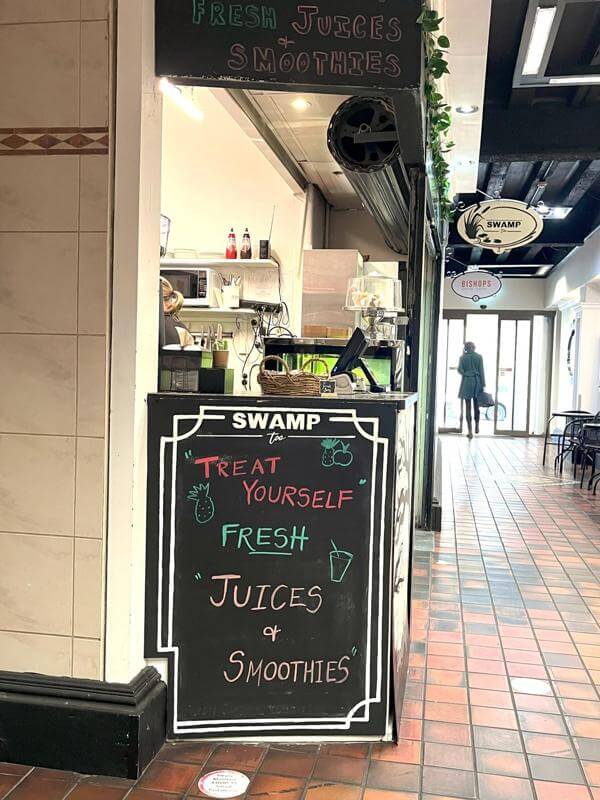 FRESH JUICES
&
SMOOTHIES
SWAMP
BISHOPS
SWAMP
too
"TREAT
YOURSELF"
FRESH
"JUICES
&
SMOOTHIES"